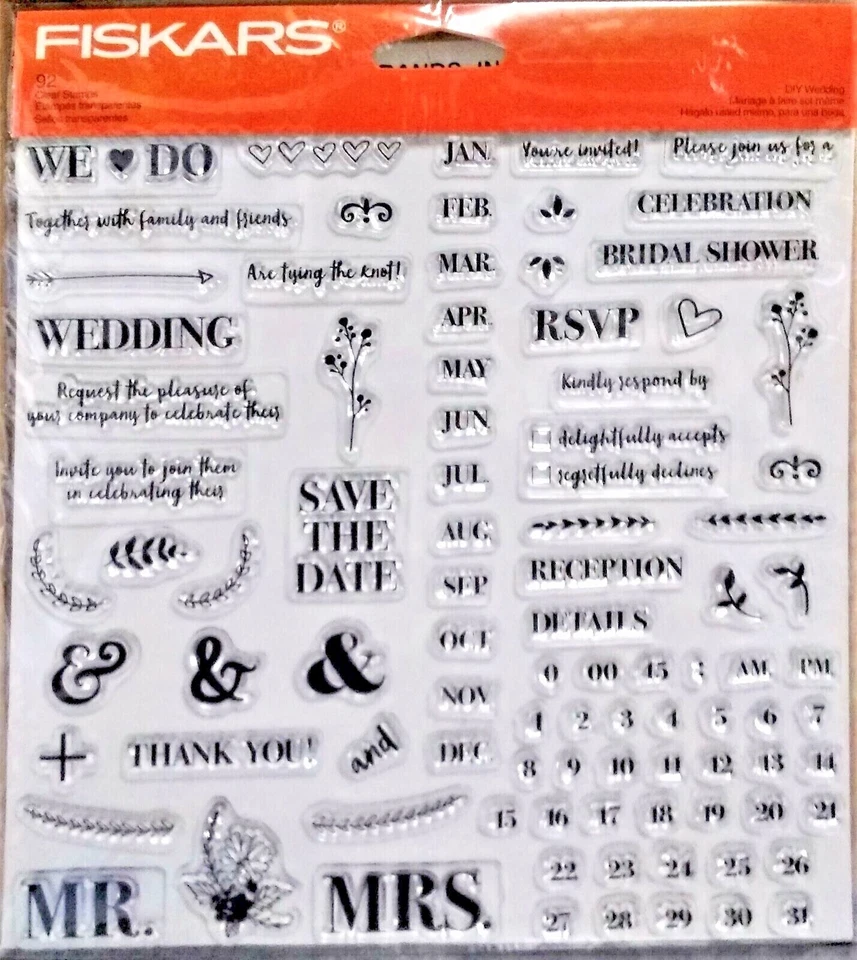 FISKARS®
92
Clear Stamps
Estampes transparentes
Sellos transparentes
DIY Wedding
Mariage à faire soi même
Hágalo usted mismo, para una boda
WE DO
JAN.
You're invited!
Please join us for a
Together with family and friends
FEB.
CELEBRATION
Are tying the knot!
MAR.
BRIDAL SHOWER
WEDDING
APR.
RSVP
Request the pleasure of
your company to celebrate their
MAY
Kindly respond by
JUN.
delightfully accepts
Invite you to join them
in celebrating their
JUL.
regretfully declines
SAVE
THE
DATE
AUG.
SEP.
RECEPTION
DETAILS
& & &
OCT.
0 00 45 : AM PM
NOV.
1 2 3 4 5 6 7
+ THANK YOU! and
DEC.
8 9 10 11 12 13 14
15 16 17 18 19 20 21
MR.
MRS.
22 23 24 25 26
27 28 29 30 31